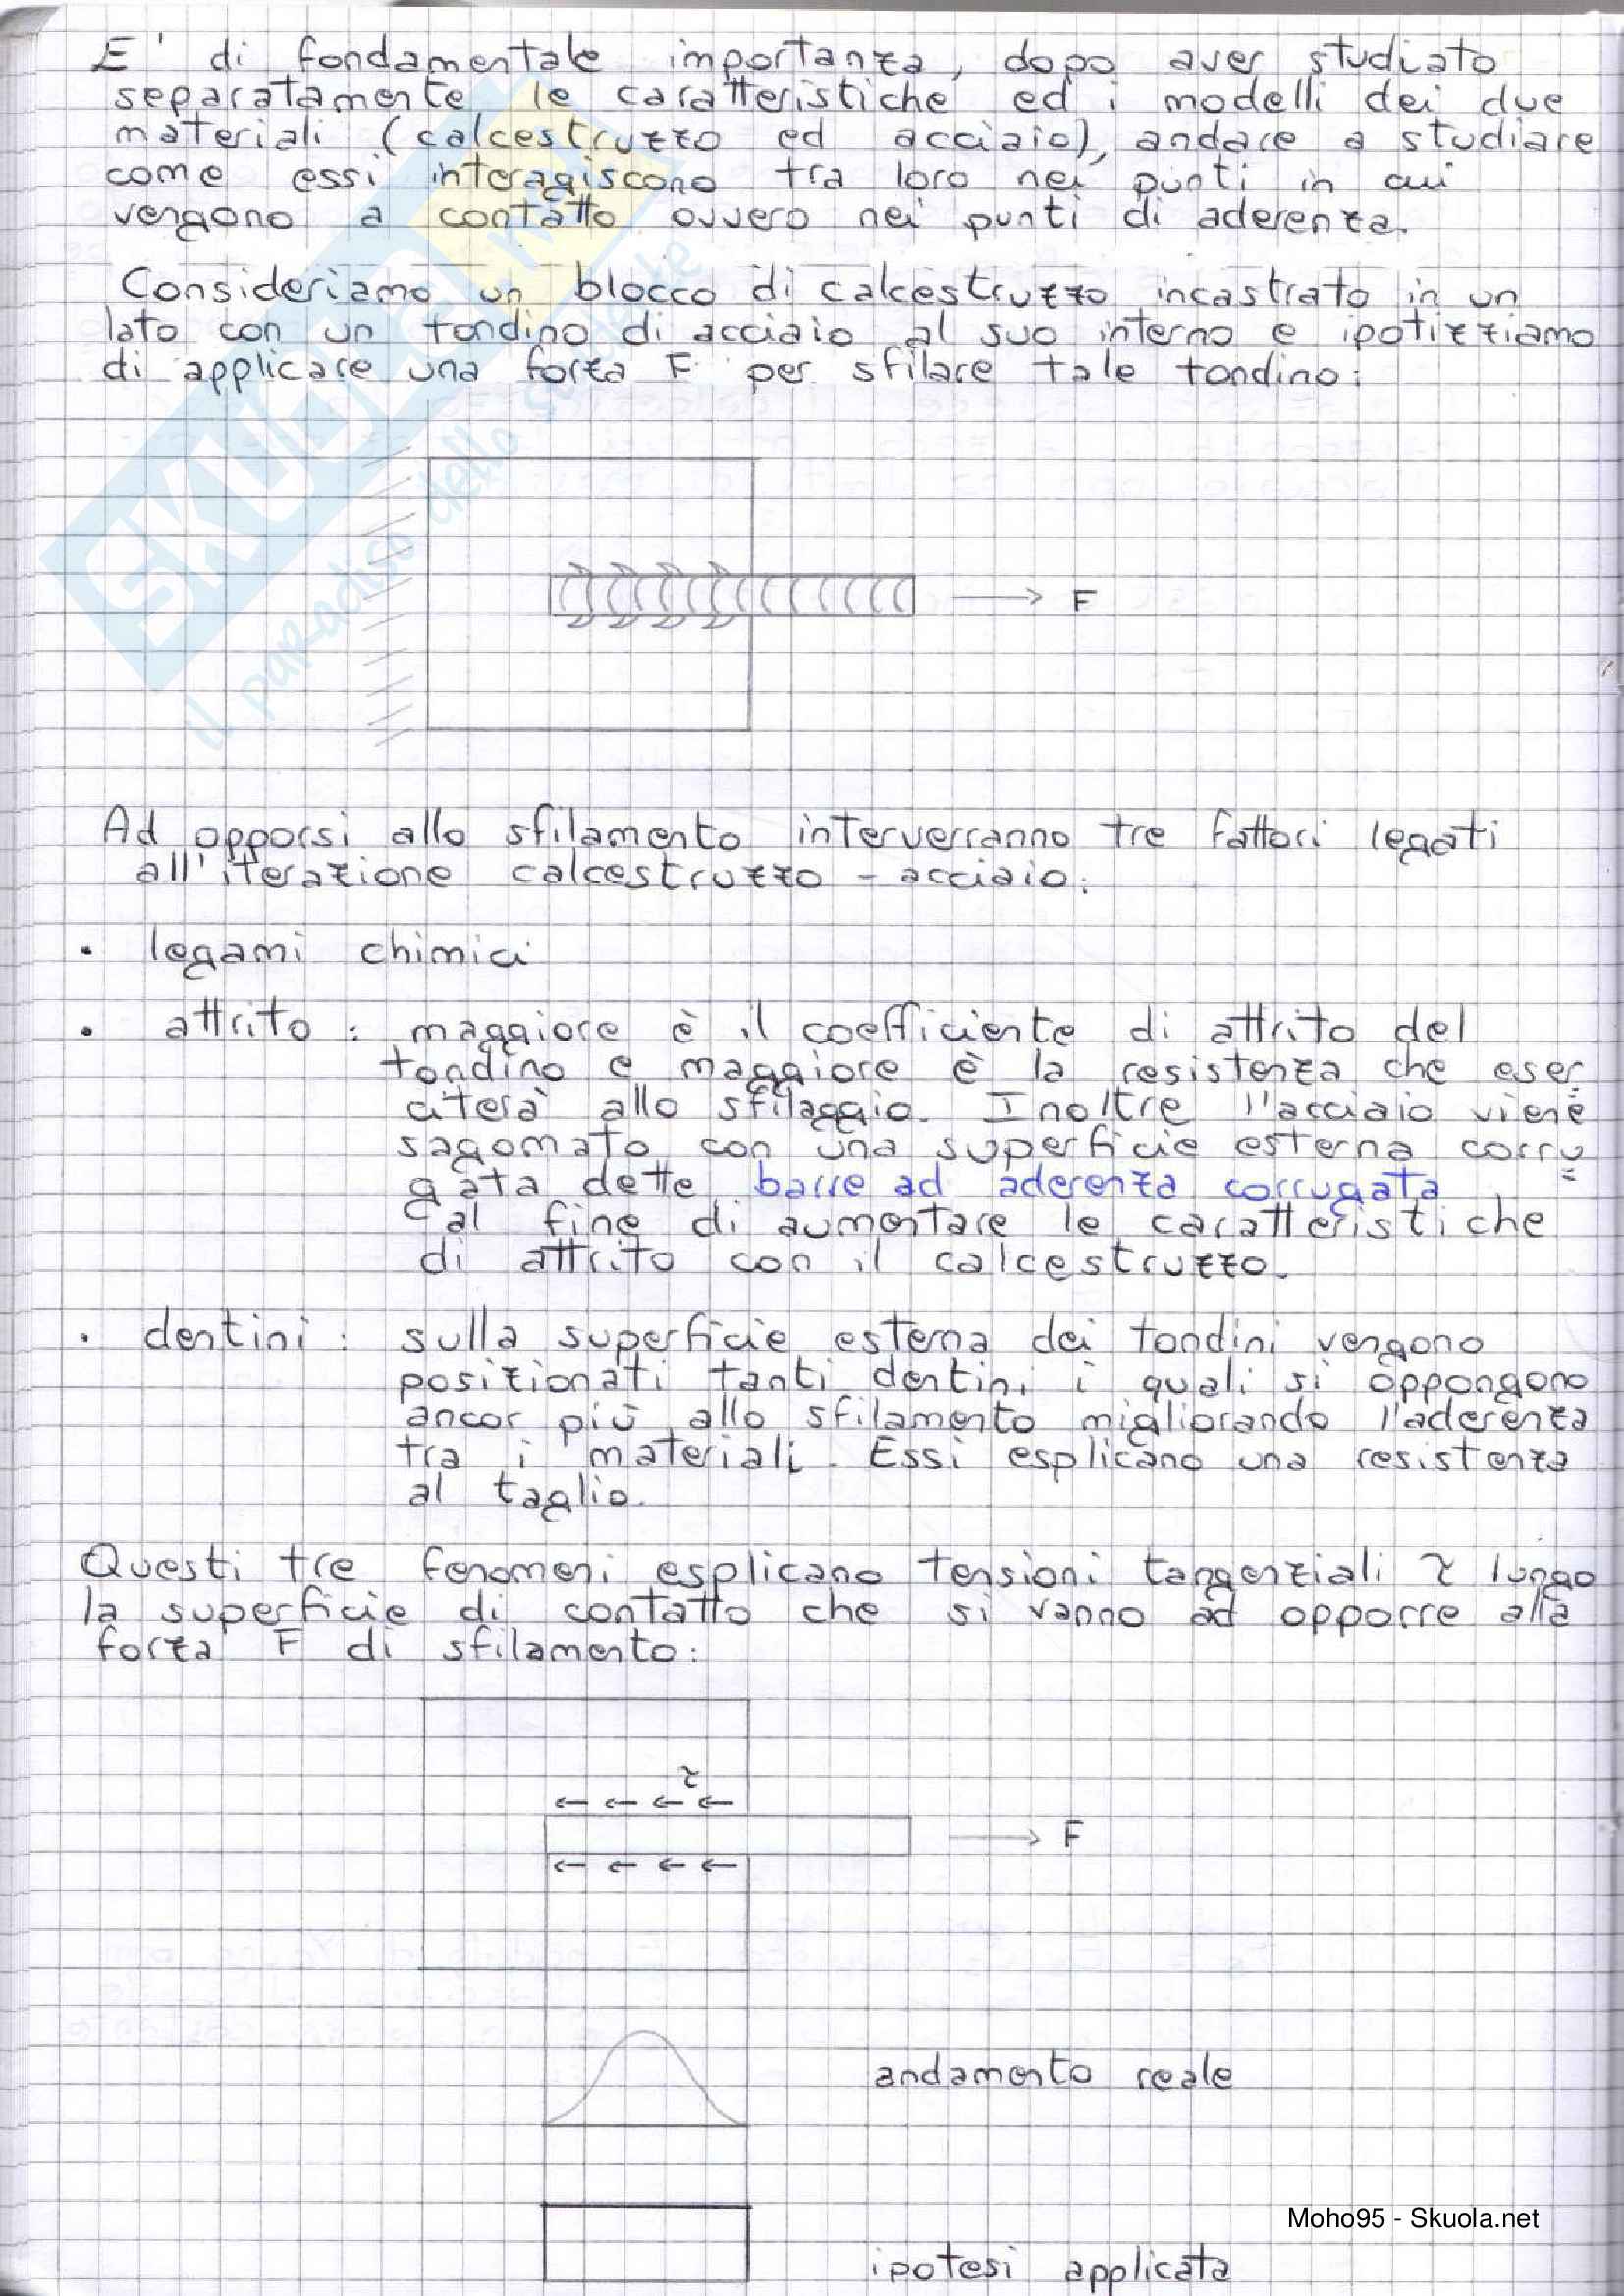 E' di fondamentale importanza, dopo aver studiato
separatamente le caratteristiche ed i modelli dei due
materiali (calcestruzzo ed acciaio), andare a studiare
come essi interagiscono tra loro nei punti in cui
vengono a contatto ovvero nei punti di aderenza.
Consideriamo un blocco di calcestruzzo incastrato in un
lato con un tondino di acciaio al suo interno e ipotizziamo
di applicare una forza F per sfilare tale tondino:
SKUOLA.net
il paradiso dello studente
F
Ad opporsi allo sfilamento interverranno tre fattori legati
all'iterazione calcestruzzo - acciaio:
• legami chimici
• attrito : maggiore è il coefficiente di attrito del
tondino e maggiore è la resistenza che eser
citerà allo sfilaggio. Inoltre l'acciaio viene
sagomato con una superficie esterna corru
gata dette barre ad aderenza corrugata
al fine di aumentare le caratteristiche
di attrito con il calcestruzzo.
• dentini : sulla superficie esterna dei tondini vengono
posizionati tanti dentini i quali si oppongono
ancor più allo sfilamento migliorando l'aderenza
tra i materiali. Essi esplicano una resistenza
al taglio.
Questi tre fenomeni esplicano tensioni tangenziali τ lungo
la superficie di contatto che si vanno ad opporre alla
forza F di sfilamento:
τ
F
andamento reale
ipotesi applicata
Moho95 - Skuola.net